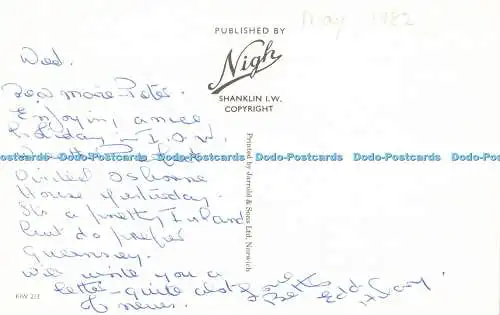 May 1982
PUBLISHED BY
Nigh
SHANKLIN I.W.
COPYRIGHT
Printed by Jarrold & Sons Ltd, Norwich
Wed.
Dear Marie-Peter.
Enjoying a nice
holiday in I.O.W.
Dodo-Postcards Dodo-Postcards Dodo-Postcards Dodo-Postcards Dodo-Postcards
Visited Osborne
House yesterday.
Its a pretty Island
but do prefer
Guernsey.
Will write you a
letter - quite a lot
of news.
KIW 213